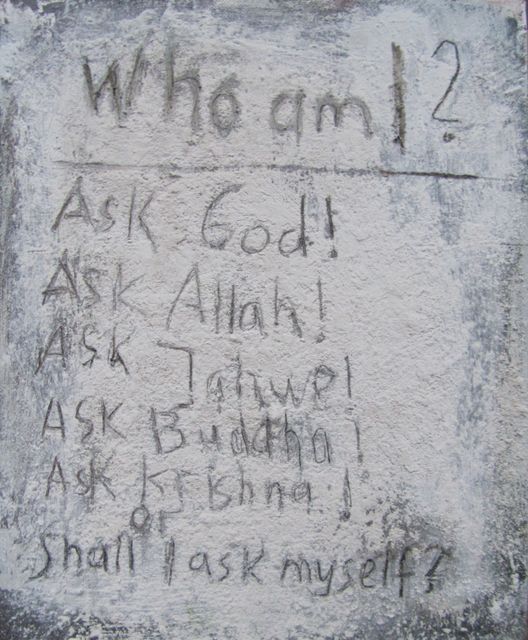 Who am I?
Ask God!
Ask Allah!
Ask Jahwe!
Ask Buddha!
Ask Krishna!
or
Shall I ask myself?